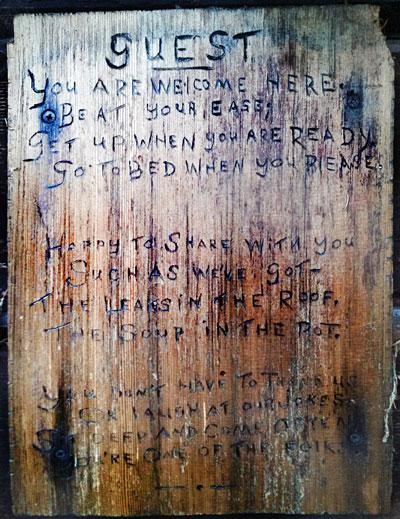 GUEST
YOU ARE WELCOME HERE.
BE AT YOUR EASE;
GET UP WHEN YOU ARE READY,
GO TO BED WHEN YOU PLEASE.
HAPPY TO SHARE WITH YOU
SUCH AS WE'VE GOT-
THE LEAKS IN THE ROOF,
THE SOUP IN THE POT.
YOU DON'T HAVE TO THANK US
OR LAUGH AT OUR JOKES
SIT DEEP AND COME OFTEN
YOU'RE ONE OF THE FOLK.